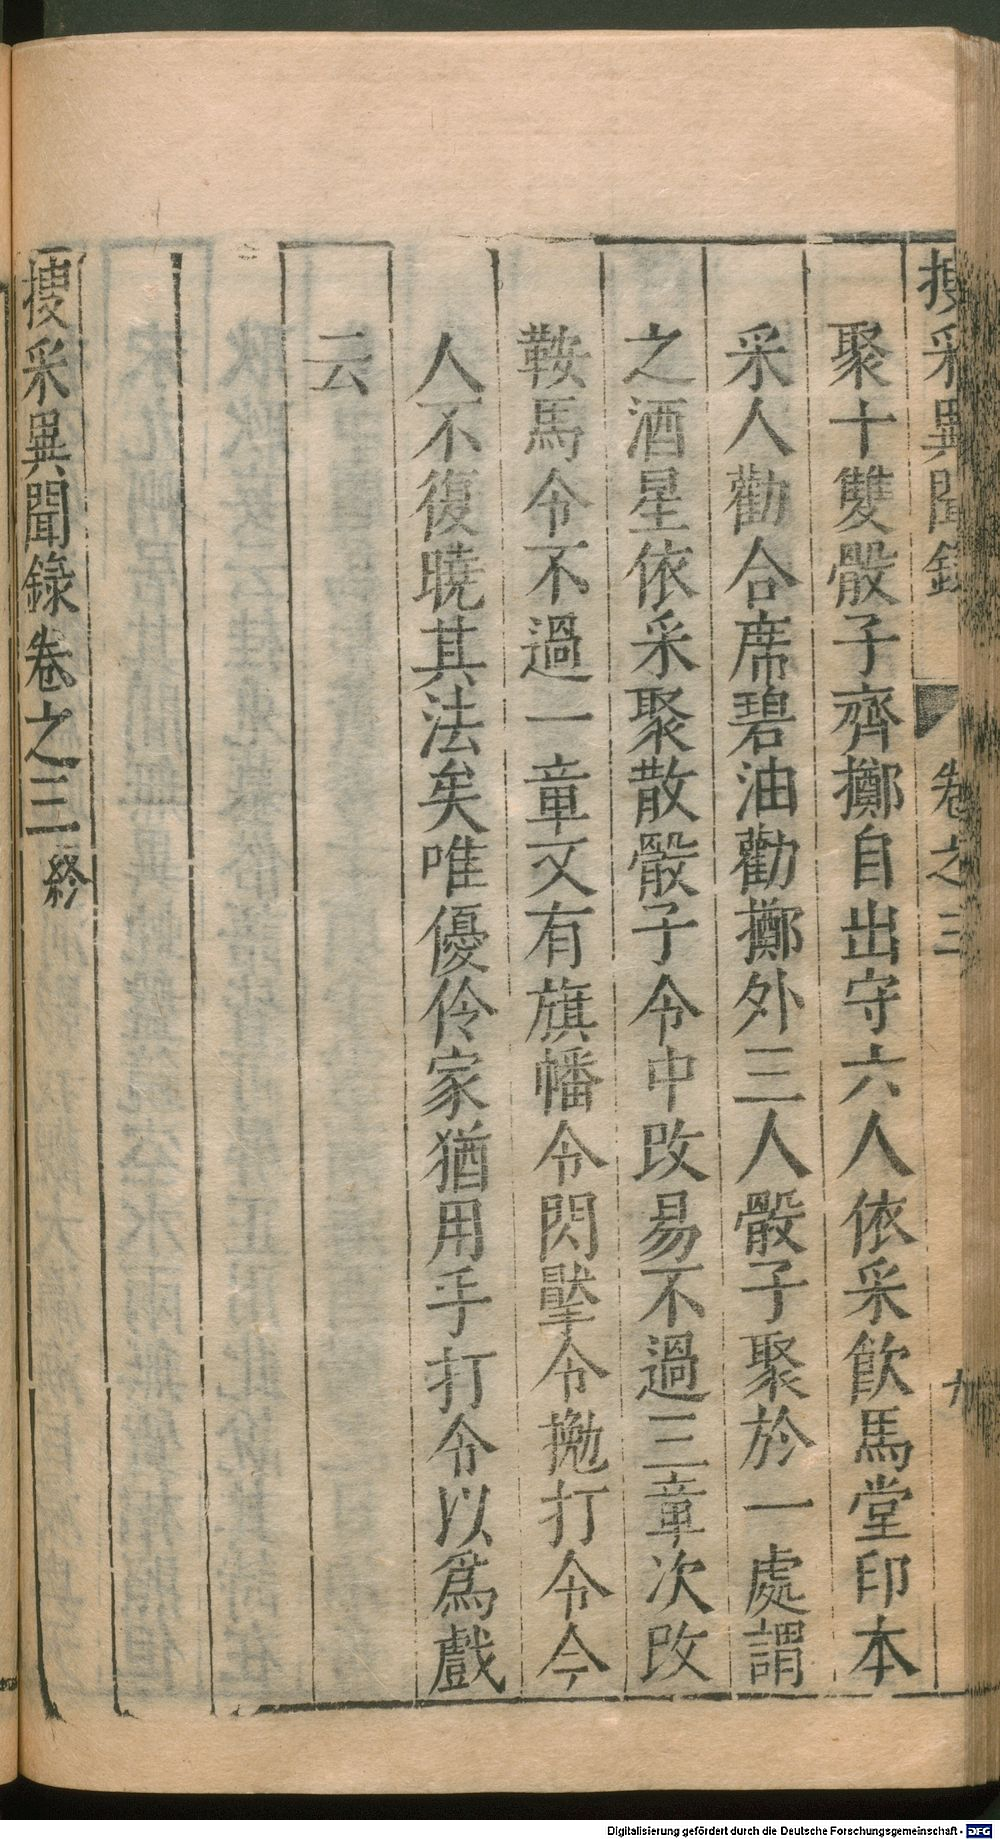 搜采異聞錄 卷之三 九
聚十雙骰子齊擲自出守六人依采飲馬堂印本
采人勸合席碧油勸擲外三人骰子聚於一處謂
之酒星依采聚散骰子令中改易不過三章次改
鞍馬令不過一章又有旗幡令閃擪令拋打令今
人不復曉其法矣唯優伶家猶用手打令以爲戲
云
搜采異聞錄卷之三終
Digitalisierung gefördert durch die Deutsche Forschungsgemeinschaft - DFG